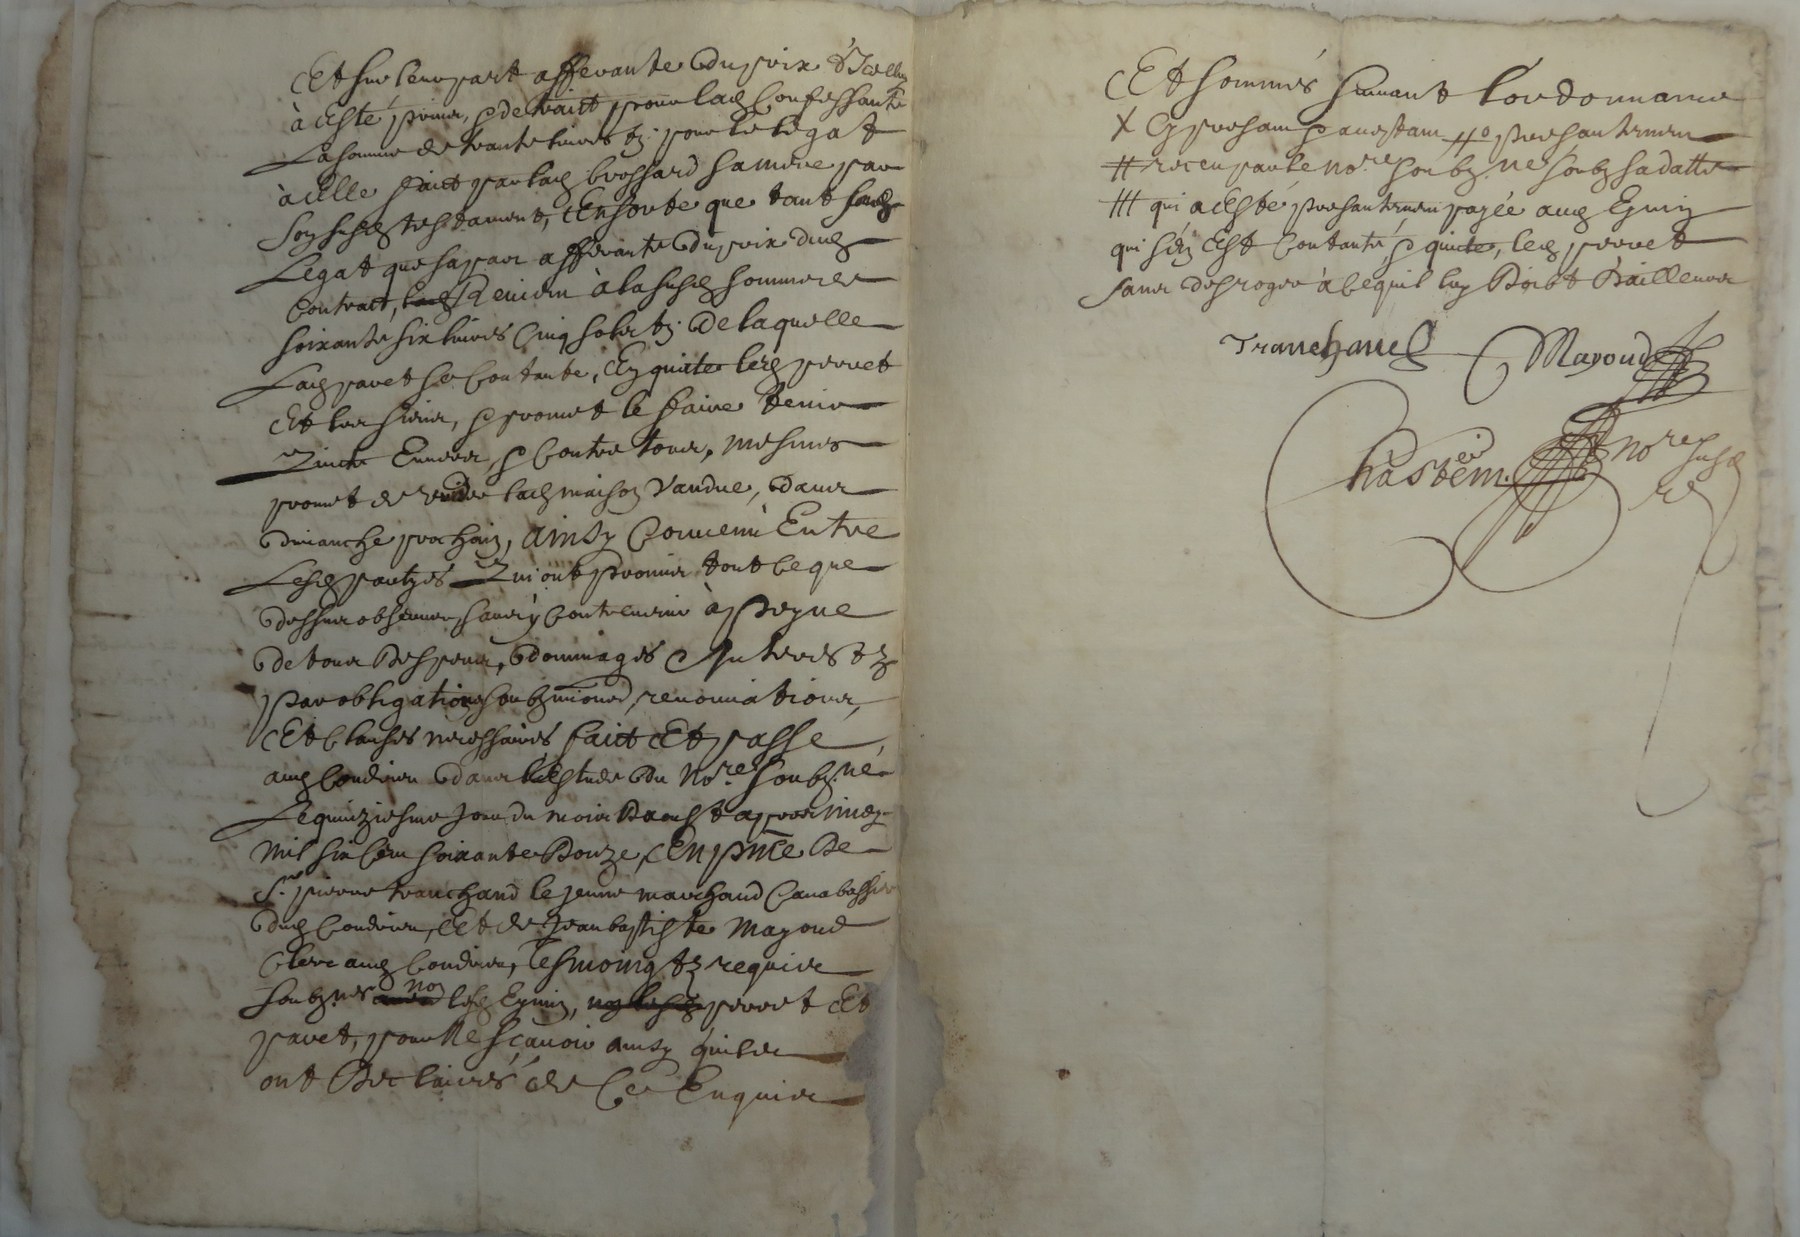 Et sur leur part afferante du prix d'Icelluy
à esté prins, & detraict pour lad confessante
La somme de trante livres tz. pour le légat
à elle faict par lad brossard sa mere par
son susd testament, Ensorte que tant sond
Legat que sa part afferante du prix dud
Contract, lad Revien à la susd somme de
soixante six livres Cinq sols tz. de laquelle
Lad pavet se contante, En quitte led perret
Et les siens, & promet le faire tenir
quicte Envers, & contre tous, mesmes
promet de vuider lad maison vandue, dans
dimanche prochain, ainsy convenu Entre
Lesd partyes qui ont promis tout ce que
dessus observer, sans y contrevenir à peyne
de tous despens, dommages & Interestz
par obligations soubzmissions, renonciations,
Et clauses necessaires faict Et passé
aud Condrieu dans l'estude du no.re soubz.né
Le quinziesme jour du mois daoust apres midy
mil six cens soixante Douze, En p̃nce de
S.r pierre tranchand le jeune marchand Canabassier
dud Condrieu, Et de Jean baptiste Mayoud
Clerc aud Condrieu, tesmoingtz requis
soubz.nés non lesd Eymin, perret Et
pavet, pour ne sçavoir ainsy quils
ont declairés de ce Enquis
Et sommés suivant lordonnance
X Cy presant & aceptant #° presantement
# receu par le no.re soubz.né soubz sa datte
||| qui a esté presantement payée aud Eymin
qui s'en Est contanté, & quicte, led perret
sans desroger à ce quil luy Doibt d'ailleurs
Tranchand Mayoud
Chasteim no.re susd